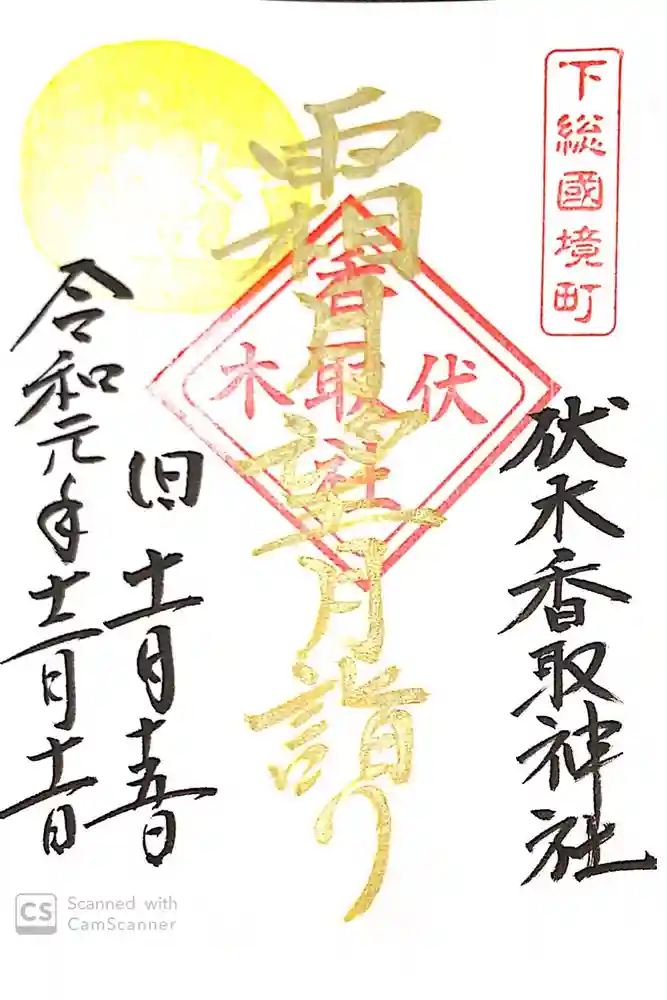 下総國境町
伏木香取神社
伏木
香取社
霜月望月詣り
旧十一月十五日
令和元年十二月十一日
CS Scanned with
CamScanner